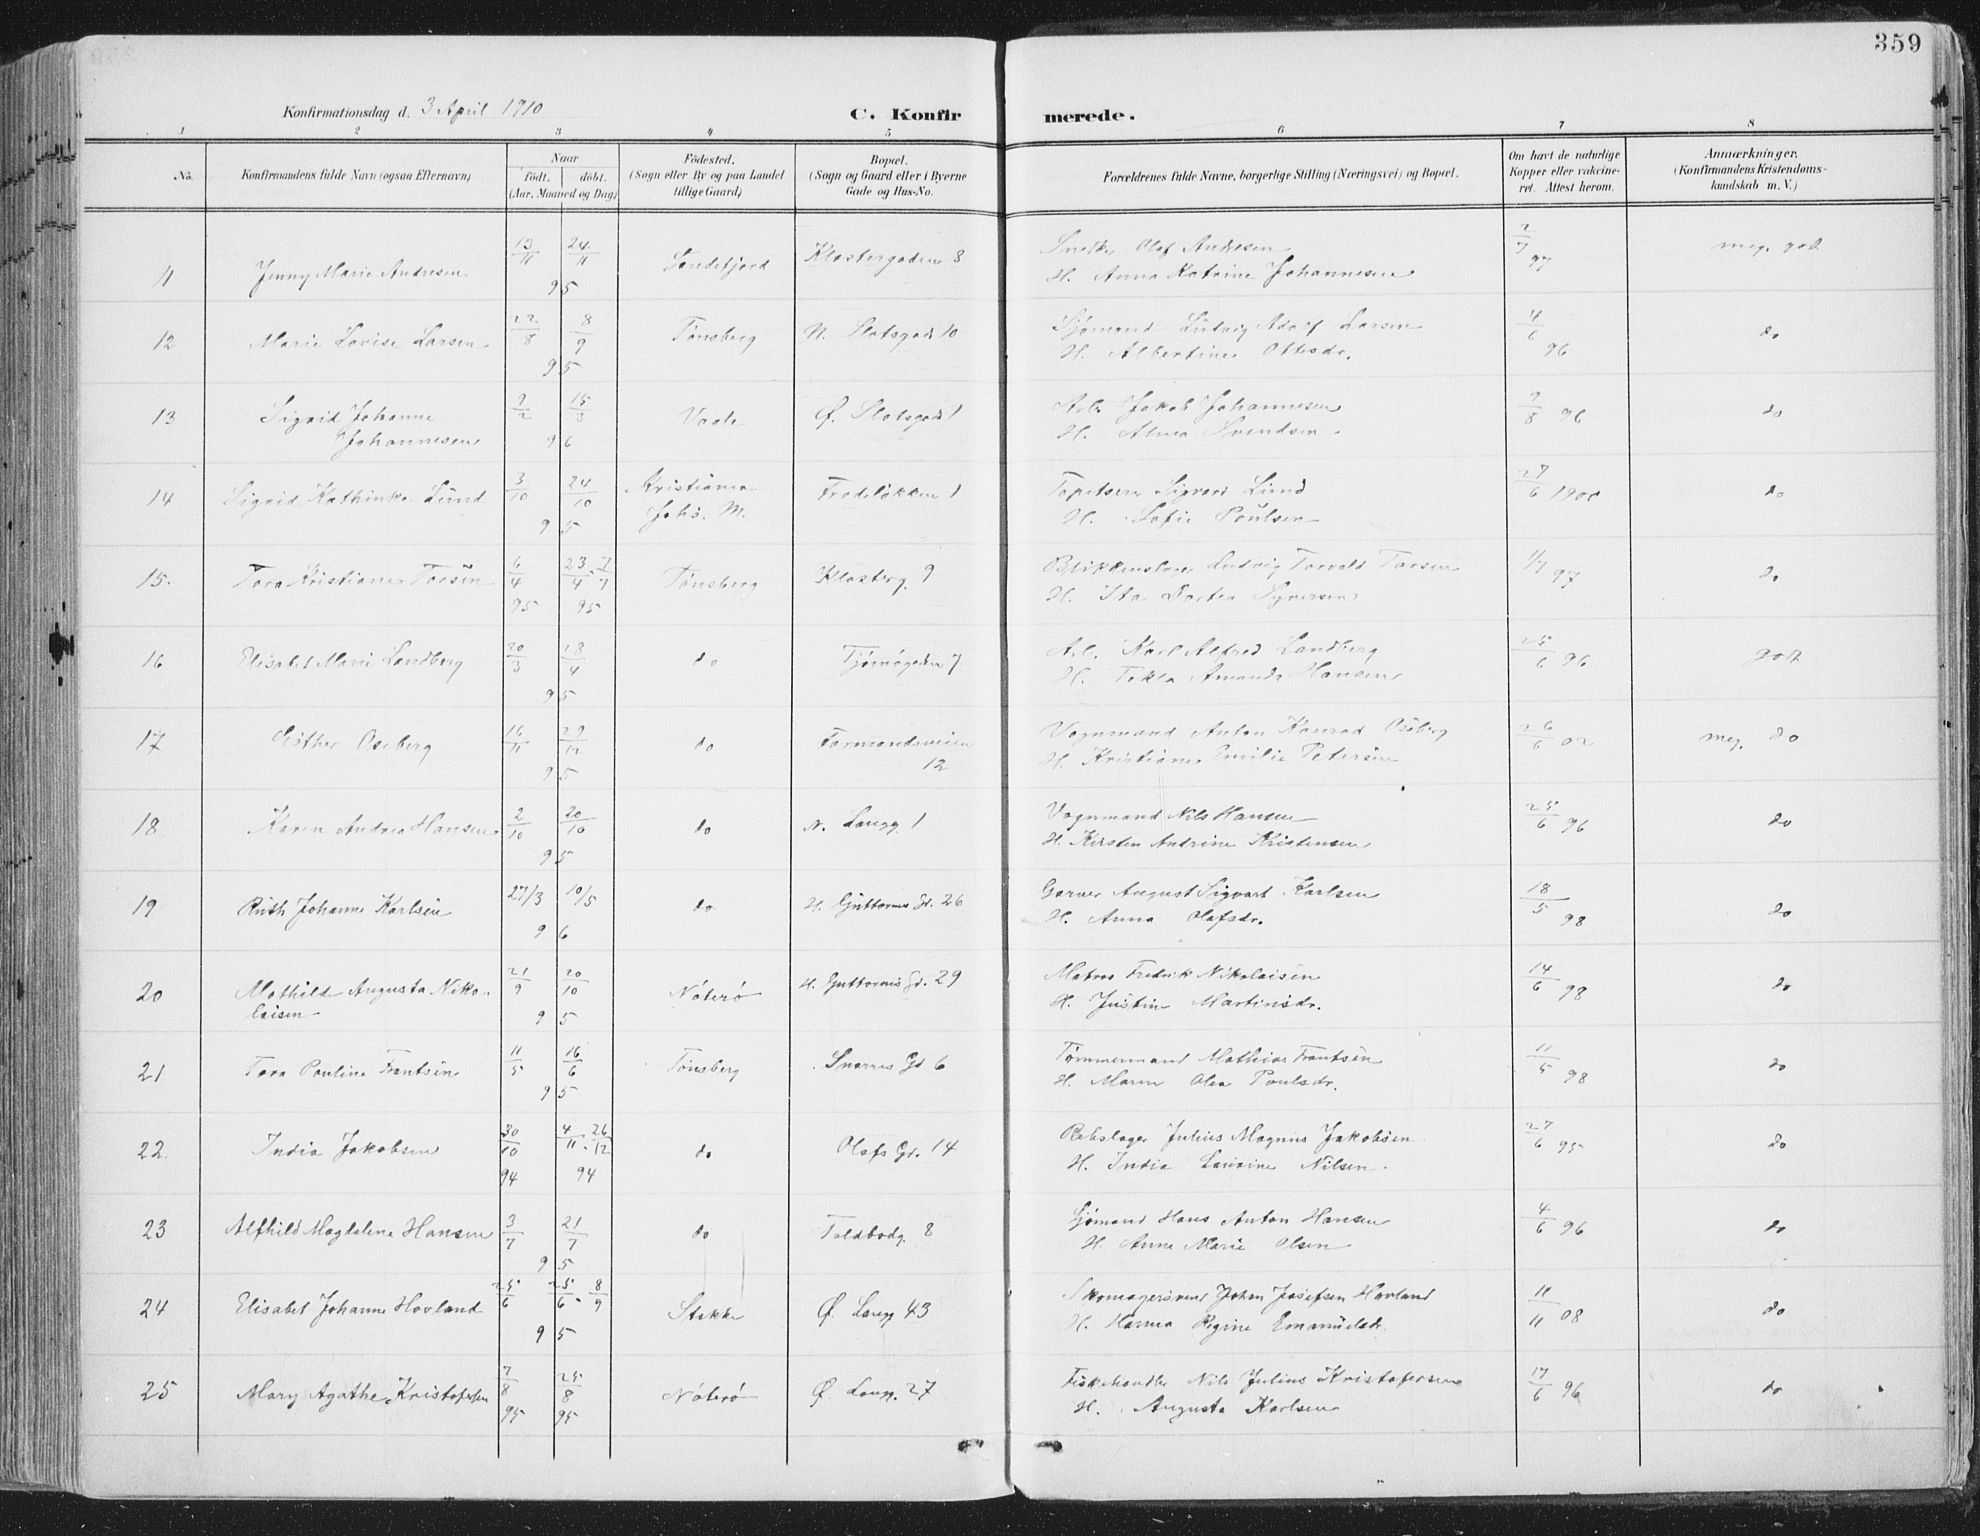 359
Konfirmationsdag d. 3 April 1910
C. Konfirmerede.
1 2 3 4 5 6 7 8
No.
Konfirmandens fulde Navn (ogsaa Efternavn)
Naar
født. døbt.
(Aar, Maaned og Dag)
Fødested.
(Sogn eller By og paa Landet
tillige Gaard)
Bopæl.
(Sogn og Gaard eller i Byerne
Gade og Hus-No.
Forældrenes fulde Navne, borgerlige Stilling (Næringsvei) og Bopæl.
Om havt de naturlige
Kopper eller vakcine-
ret. Attest herom.
Anmærkninger.
(Konfirmandens Kristendoms-
kundskab m. V.)
11 Jenny Marie Andresen 13/11 24/11 95 Sandefjord Klostergaden 8 Snedker Olaf Andresen 2/7 97 meg. god
H. Anna Katrine Johannesen
12 Marie Lovise Larsen 22/8 8/9 95 Tønsberg N. Slotsgade 10 Sjømand Ludvig Adolf Larsen 4/6 96 do
H. Albertine Ottesdr.
13 Sigrid Johanne 9/2 15/3 96 Vaale Ø. Slotsgade 1 Arb. Jakob Johannesen 9/8 96 do
Johannesen H. Alma Svendsen
14 Sigrid Kathinka Lund 3/10 24/10 95 Kristiania Frodeløkken 1 Tapetserer Sigvard Lund 27/6 1900 do
Johs. M. H. Sofie Poulsen
15. Tora Kristiane Torsen 6/4 95 23/4 - 7/7 95 Tønsberg Klosterg. 9 Blikkenslager Ludvig Torvald Torsen 1/7 97 do
H. Ita Dortea Syversen
16 Elisabet Marie Landberg 20/3 28/4 95 do Tjømøgaden 7 Arb. Karl Alfred Landberg 25/6 96 godt
H. Tekla Amanda Hansen
17 Esther Oseberg 16/11 29/12 95 do Formandsveien Vognmand Anton Konrad Oseberg 26/6 02 meg. do
12 H. Kristiane Emilie Petersen
18 Karen Andrea Hansen 2/10 20/10 95 do N. Langg. 1 Vognmand Nils Hansen 25/6 96 do
H. Kirsten Andrine Kristensen
19 Ruth Johanne Karlsen 27/3 10/5 96 do H. Guttorms Gd. 26 Garver August Sigvart Karlsen 18/5 98 do
H. Anna Olafsdr.
20 Mathilde Augusta Niko- 21/9 20/10 95 Nøterø H. Guttorms Gd. 29 Matros Fredrik Nikolaisen 14/6 98 do
laisen H. Justine Martinsdr.
21 Tora Pauline Frantsen 11/5 16/6 95 Tønsberg Snorres Gd 6 Tømmermand Mathias Frantsen 11/5 98 do
H. Maren Olea Poulsdr.
22. India Jakobsen 30/10 94 4/11 - 26/12 94 do Olafs Gd. 14 Rebslager Julius Magnus Jakobsen 27/6 95 do
H. India Laurine Nilsen
23 Alfhild Magdalene Hansen 3/7 21/7 95 do Toldbodg. 8 Sjømand Hans Anton Hansen 4/6 96 do
H. Anne Marie Olsen
24 Elisabet Johanne Hovland 25/6 25/6 - 8/9 95 Stokke Ø. Langg 43 Skomagersvend Johan Josefsen Hovland 11/11 08 do
H. Hanna Regine Emanuelsdr.
25 Mary Agathe Kristofersen 7/8 95 25/8 95 Nøterø Ø. Langg. 27 Fiskehandler Nils Julius Kristofersen 17/6 96 do
H. Augusta Karlsen